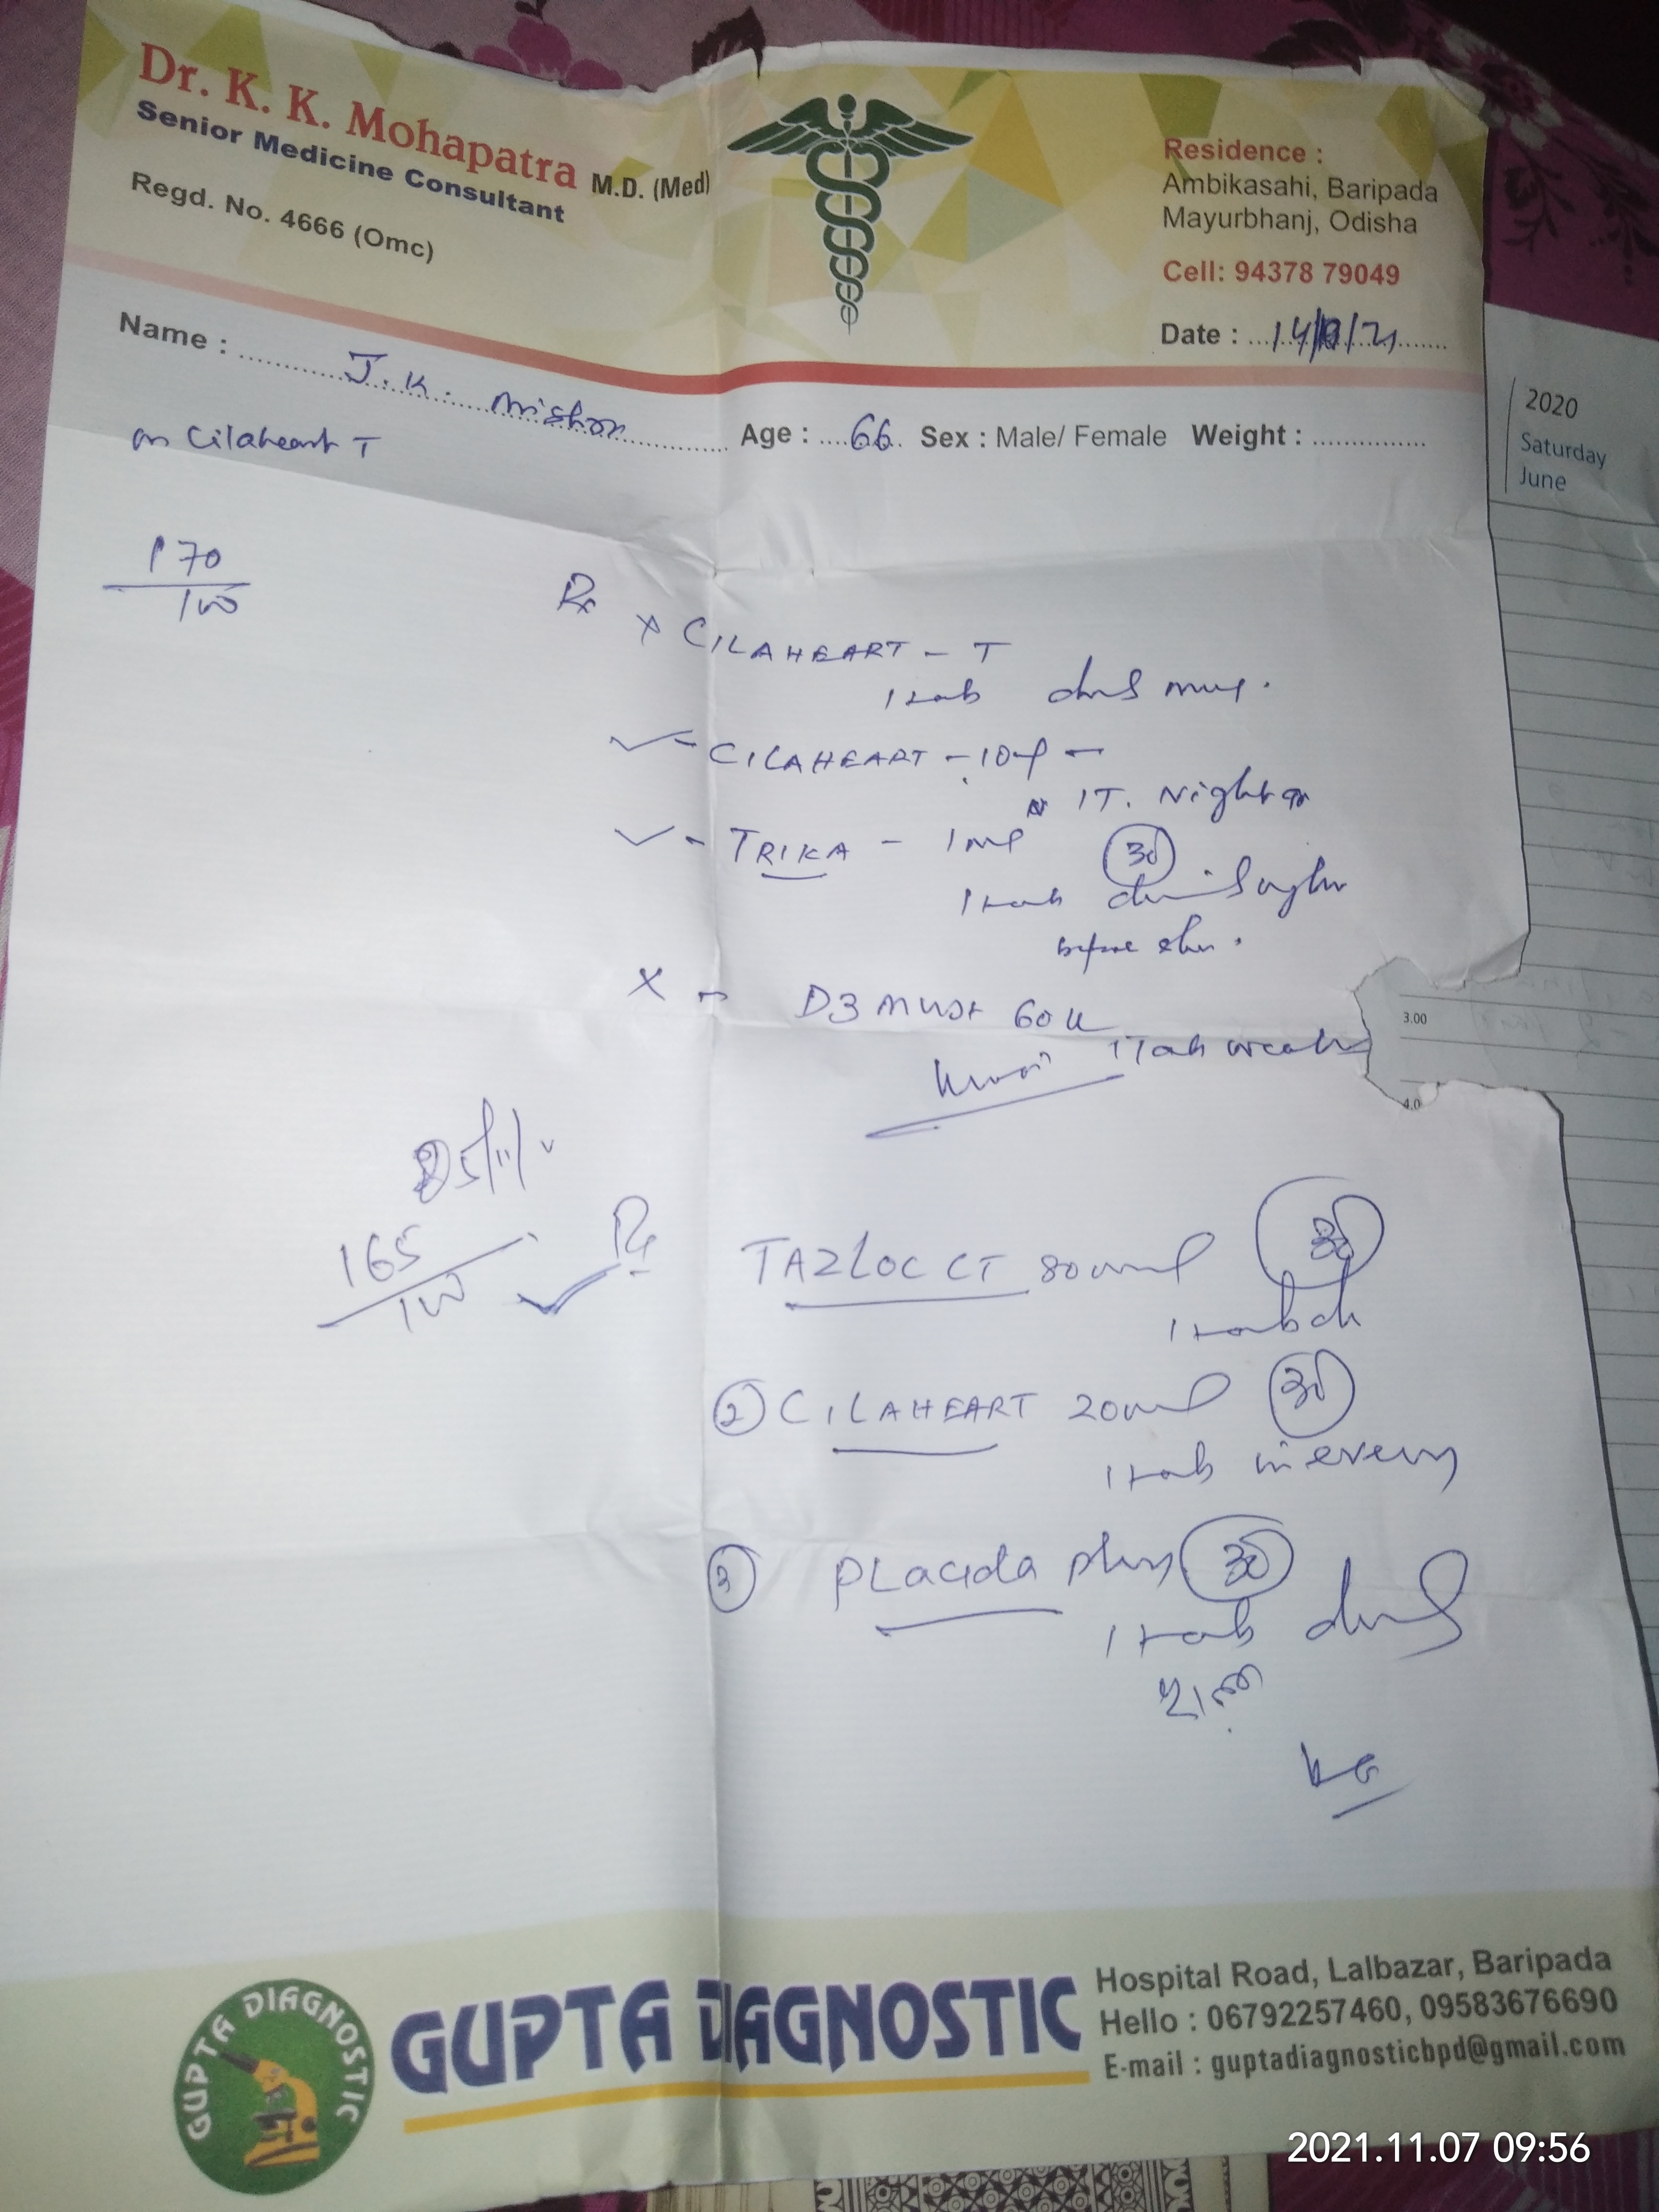 Dr. K. K. Mohapatra M.D. (Med)
Senior Medicine Consultant
Regd. No. 4666 (Omc)
Residence :
Ambikasahi, Baripada
Mayurbhanj, Odisha
Cell: 94378 79049
Date : 14/ /21
Name : J. K. Mishra
Age : 66 Sex : Male/ Female Weight :
on Cilaheart T
170
100
Rx
x CILAHEART - T
1 tab
CILAHEART - 10
1T. Night
- TRIKA - 1mg
30
1 tab
before
X - D3 MUST 60K
1 Tab
165
100
Rx
TAZLOC CT 80 mg 30
1 tab
2 CILAHEART 20 mg 30
1 tab in evening
3 PLACIDA plus 30
1 tab
GUPTA DIAGNOSTIC
GUPTA DIAGNOSTIC
Hospital Road, Lalbazar, Baripada
Hello : 06792257460, 09583676690
E-mail : guptadiagnosticbpd@gmail.com
2020
Saturday
June
3.00
4.0
2021.11.07 09:56